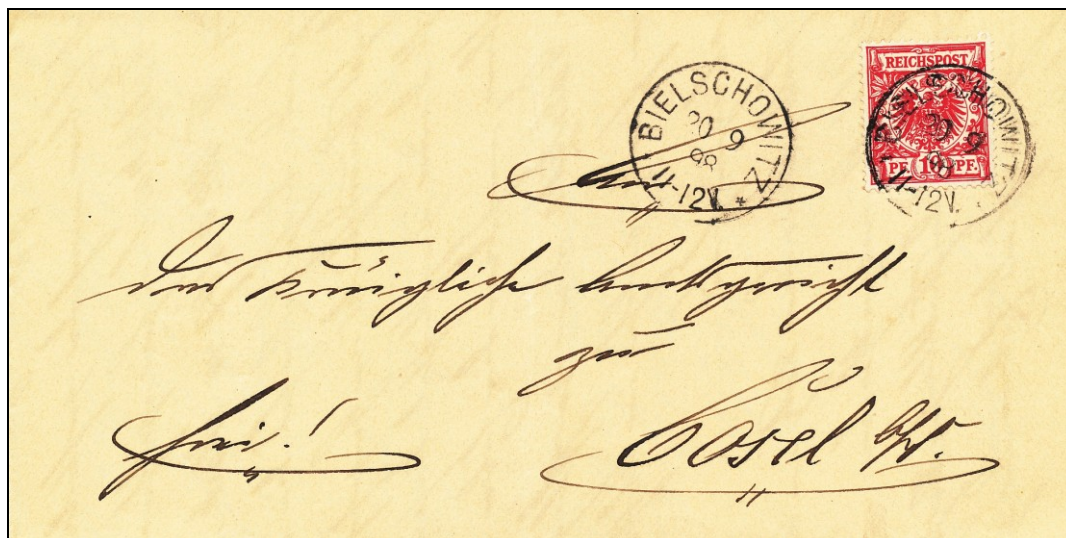 REICHSPOST
PF. 10 PF.
BIELSCHOWITZ
20 9
98
11-12V.
*
BIELSCHOWITZ
20 9
98
11-12V.
An
das Königliche Amtsgericht
zu
Cosel O/S.
frei!